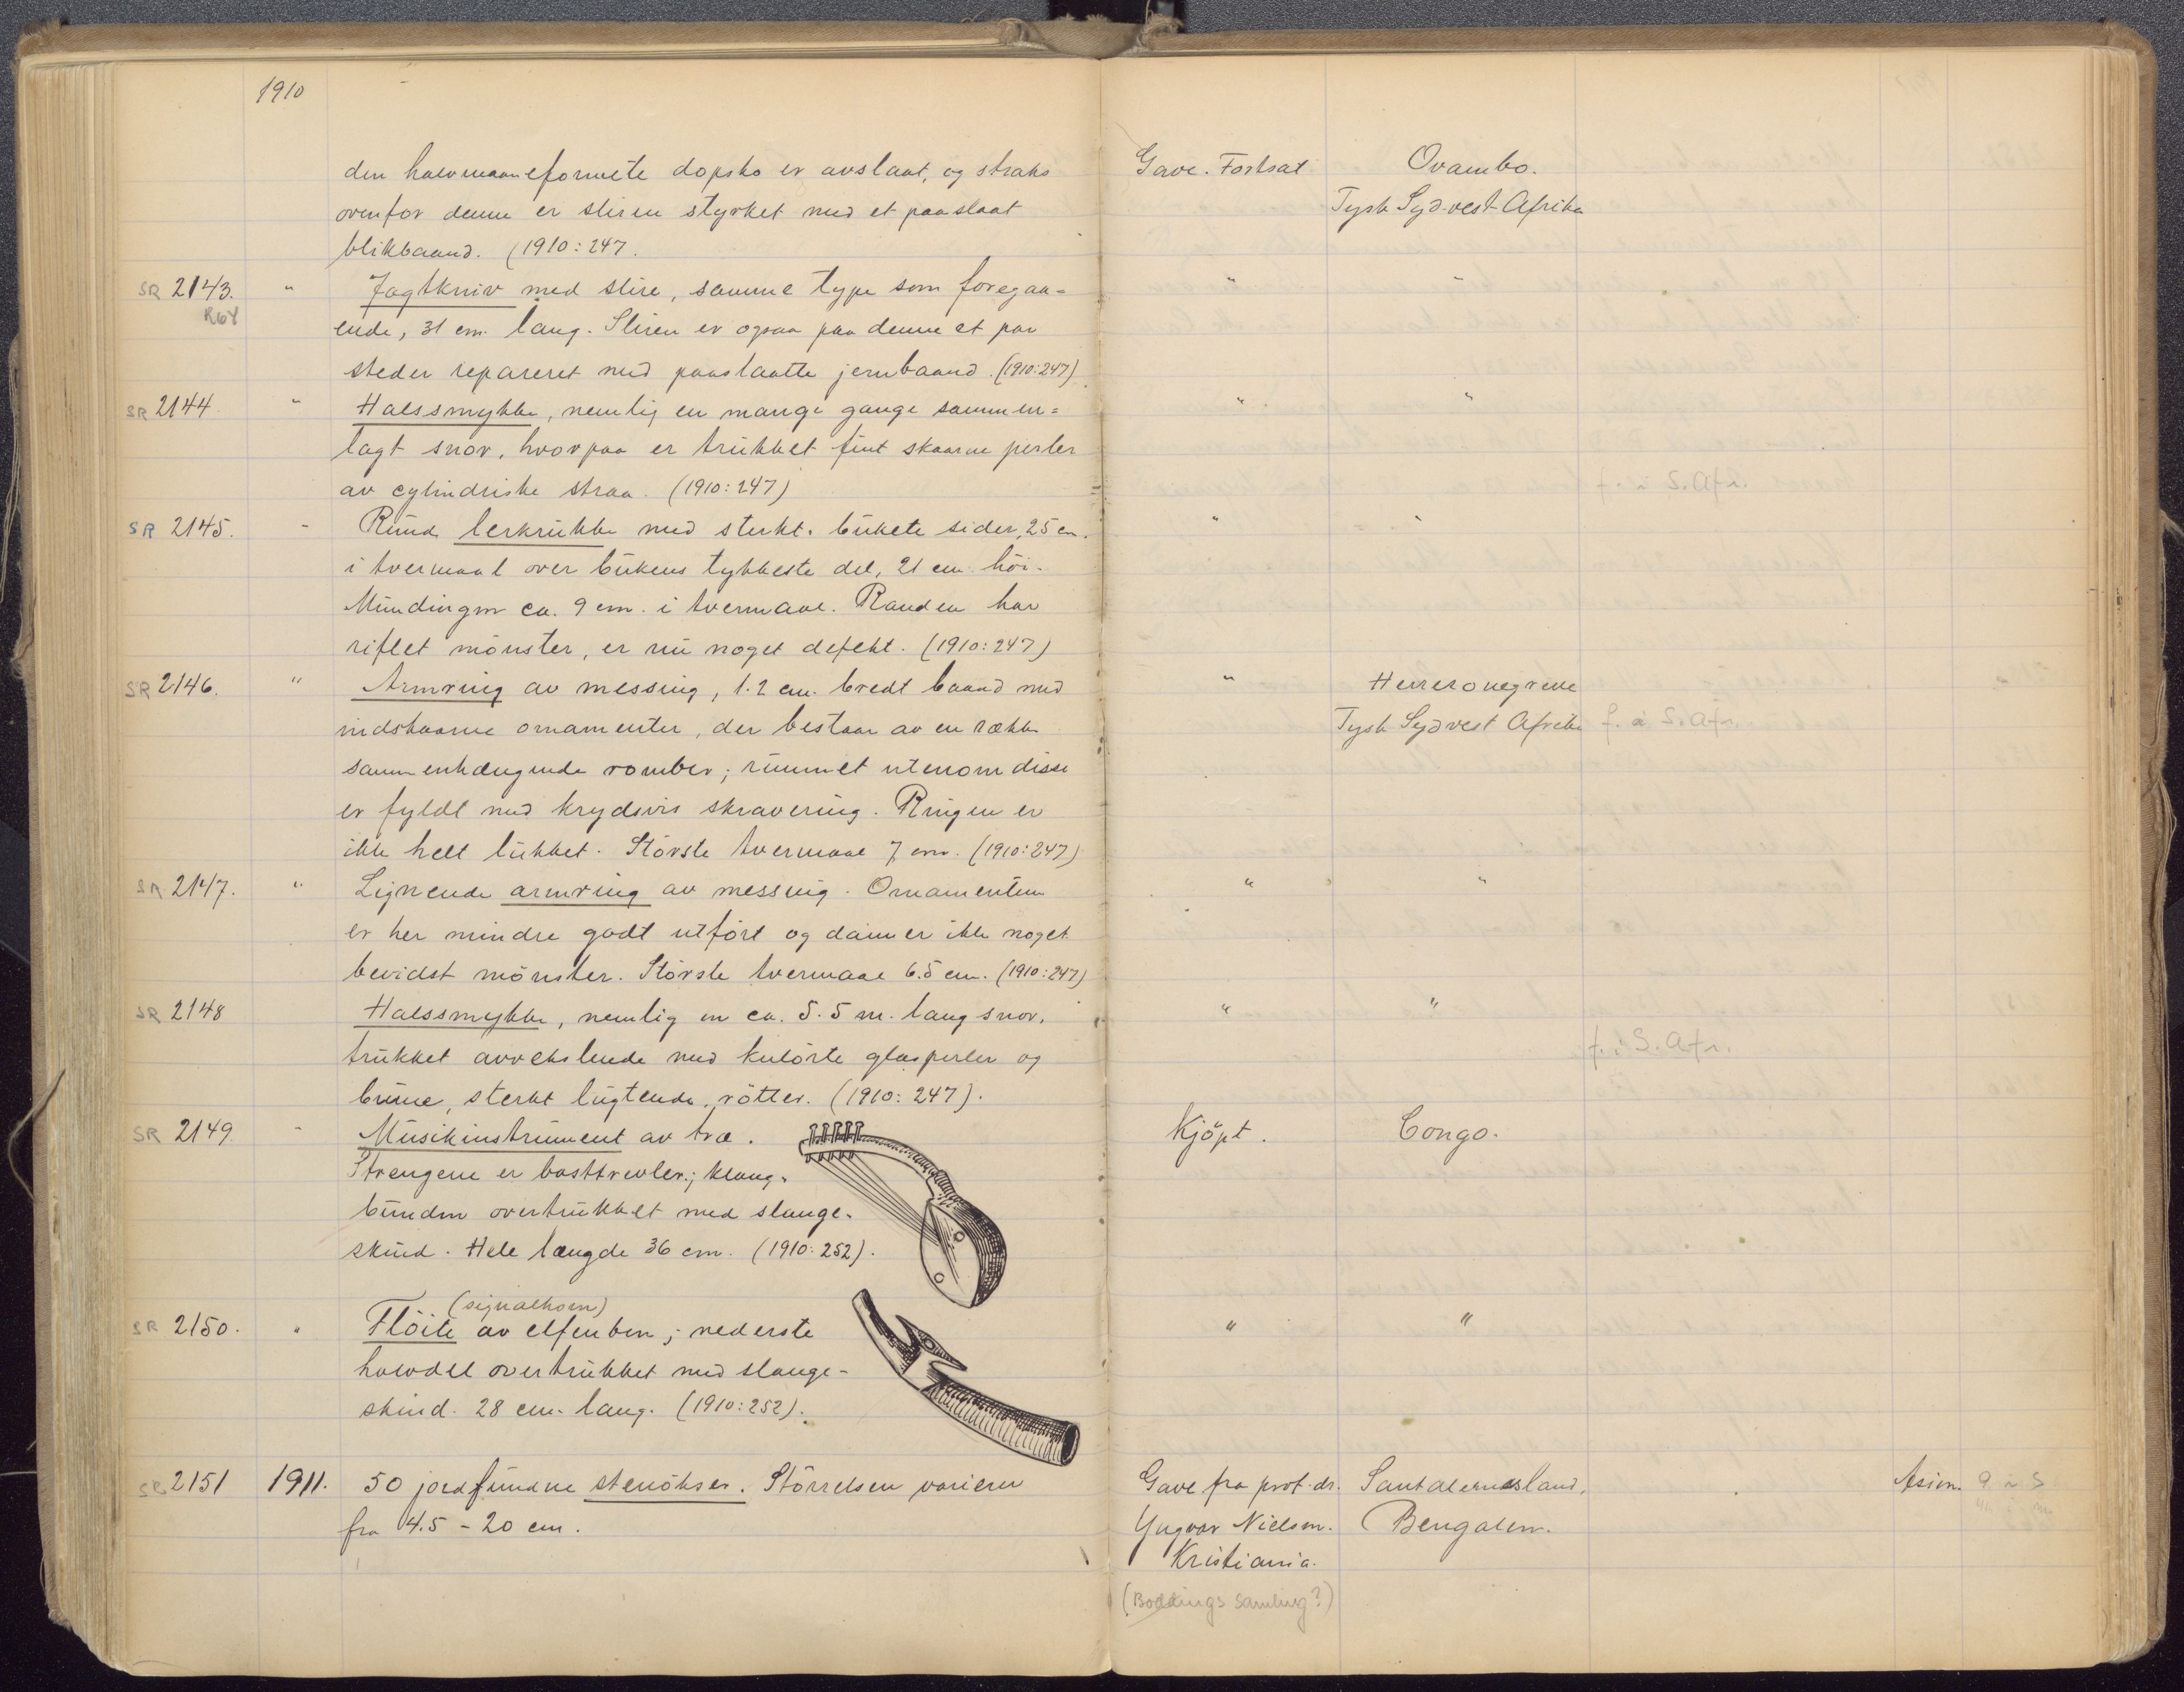 1910
den halvmaaneformete dopsko er avslaat, og straks
ovenfor denne er sliren styrket med et paaslaat
blikbaand. (1910:247.
Gave. Fortsat
Ovambo.
Tysk Syd-vest-Afrika
SR 2143. " Jagtkniv med slire, samme type som foregaa=
R64
ende, 31 cm. lang. Sliren er ogsaa paa denne et par
steder repareret med paaslaatte jernbaand. (1910:247)
" "
SR 2144 " Halssmykke, nemlig en mange gange sammen=
lagt snor, hvorpaa er trukket fint skaarne perler
av cylindriske straa. (1910:247)
" "
f. i S. Afr.
SR 2145. " Rund lerkrukke med sterkt bukete sider, 25 cm.
i tvermaal over bukens tykkeste del, 21 cm. höi.
Mundingen ca. 9 cm. i tvermaal. Randen har
riflet mönster, er nu noget defekt. (1910:247)
" "
SR 2146. " Armring av messing, 1.2 cm. bredt baand med
indskaarne ornamenter, der bestaar av en række
sammenhængende romber; rummet utenom disse
er fyldt med krydsvis skravering. Ringen er
ikke helt lukket. Störste tvermaal 7 cm. (1910:247)
" Hereronegrene
Tysk Sydvest Afrika f. i S. Afr.
SR 2147. " Lignende armring av messing. Ornamenten
er her mindre godt utfört og danner ikke noget
bevidst mönster. Störste tvermaal 6.5 cm. (1910:247)
" "
SR 2148 Halssmykke, nemlig en ca. 5.5 m. lang snor,
trukket avvekslende med kulörte glasperler og
brune, sterkt lugtende, rötter. (1910:247).
" "
f. i S. Afr.
SR 2149. " Musikinstrument av træ.
Strengene er basttrevler; klang-
bunden overtrukket med slange-
skind. Hele længde 36 cm. (1910:252).
Kjöpt. Congo.
(signalhorn)
SR 2150. " Flöite av elfenben; nederste
halvdel overtrukket med slange-
skind. 28 cm. lang. (1910:252).
" "
SR 2151 1911. 50 jordfundne stenökser. Störrelsen varierer
fra 4.5 - 20 cm.
Gave fra prof. dr. Santalernes land,
Yngvar Nielsen. Bengalen.
Kristiania.
(Boddings samling?)
Asien.